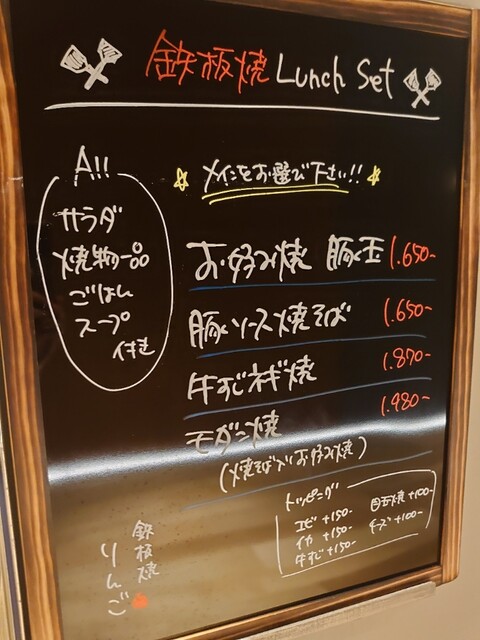 鉄板焼 Lunch Set
All
サラダ
焼物一品
ごはん
スープ
付き
☆ メインをお選び下さい!! ☆
お好み焼 豚玉 1.650-
豚ソース焼そば 1.650-
牛すじネギ焼 1.870-
モダン焼 1.980-
(焼そば入りお好み焼)
トッピング
エビ +150-
イカ +150-
牛すじ +150-
目玉焼 +100-
チーズ +100-
鉄板焼
りんご